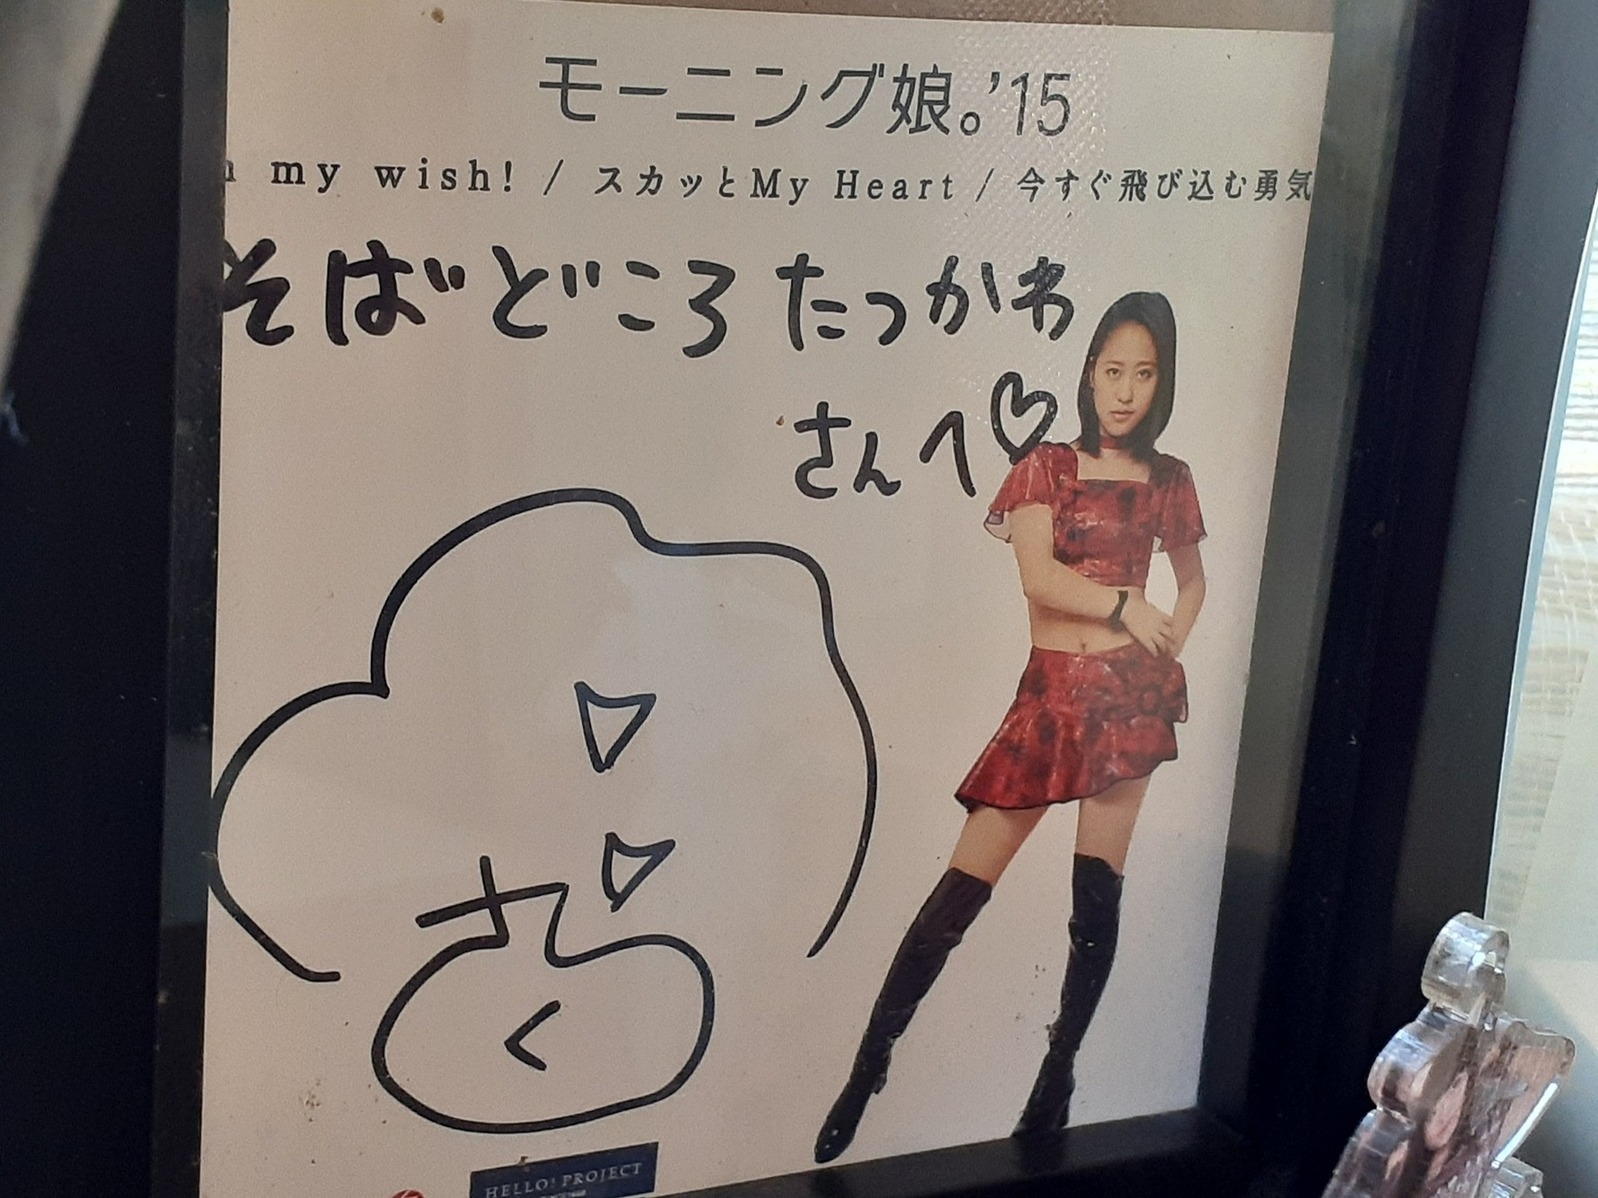 モーニング娘。'15
my wish! / スカッとMy Heart / 今すぐ飛び込む勇気
そばどころ たっかわ
さんへ♡
HELLO! PROJECT